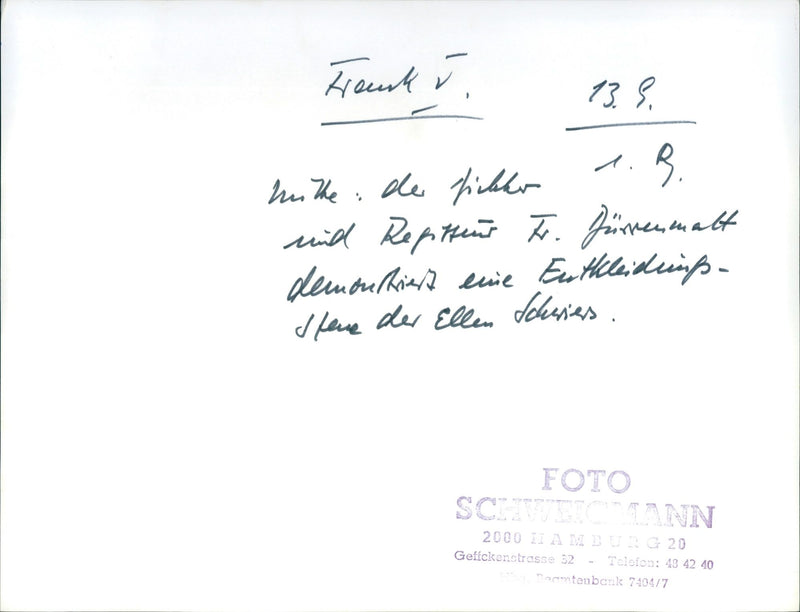 Frank V.
13. 9.
1. Pg.
Mitte: der Dichter
und Regisseur Fr. Dürrenmatt
demonstriert eine Entkleidungs-
szene der Ellen Schwiers.
FOTO
SCHWEIGMANN
2000 HAMBURG 20
Geffckenstrasse 32 - Telefon: 48 42 40
Beamtenbank 7404/7